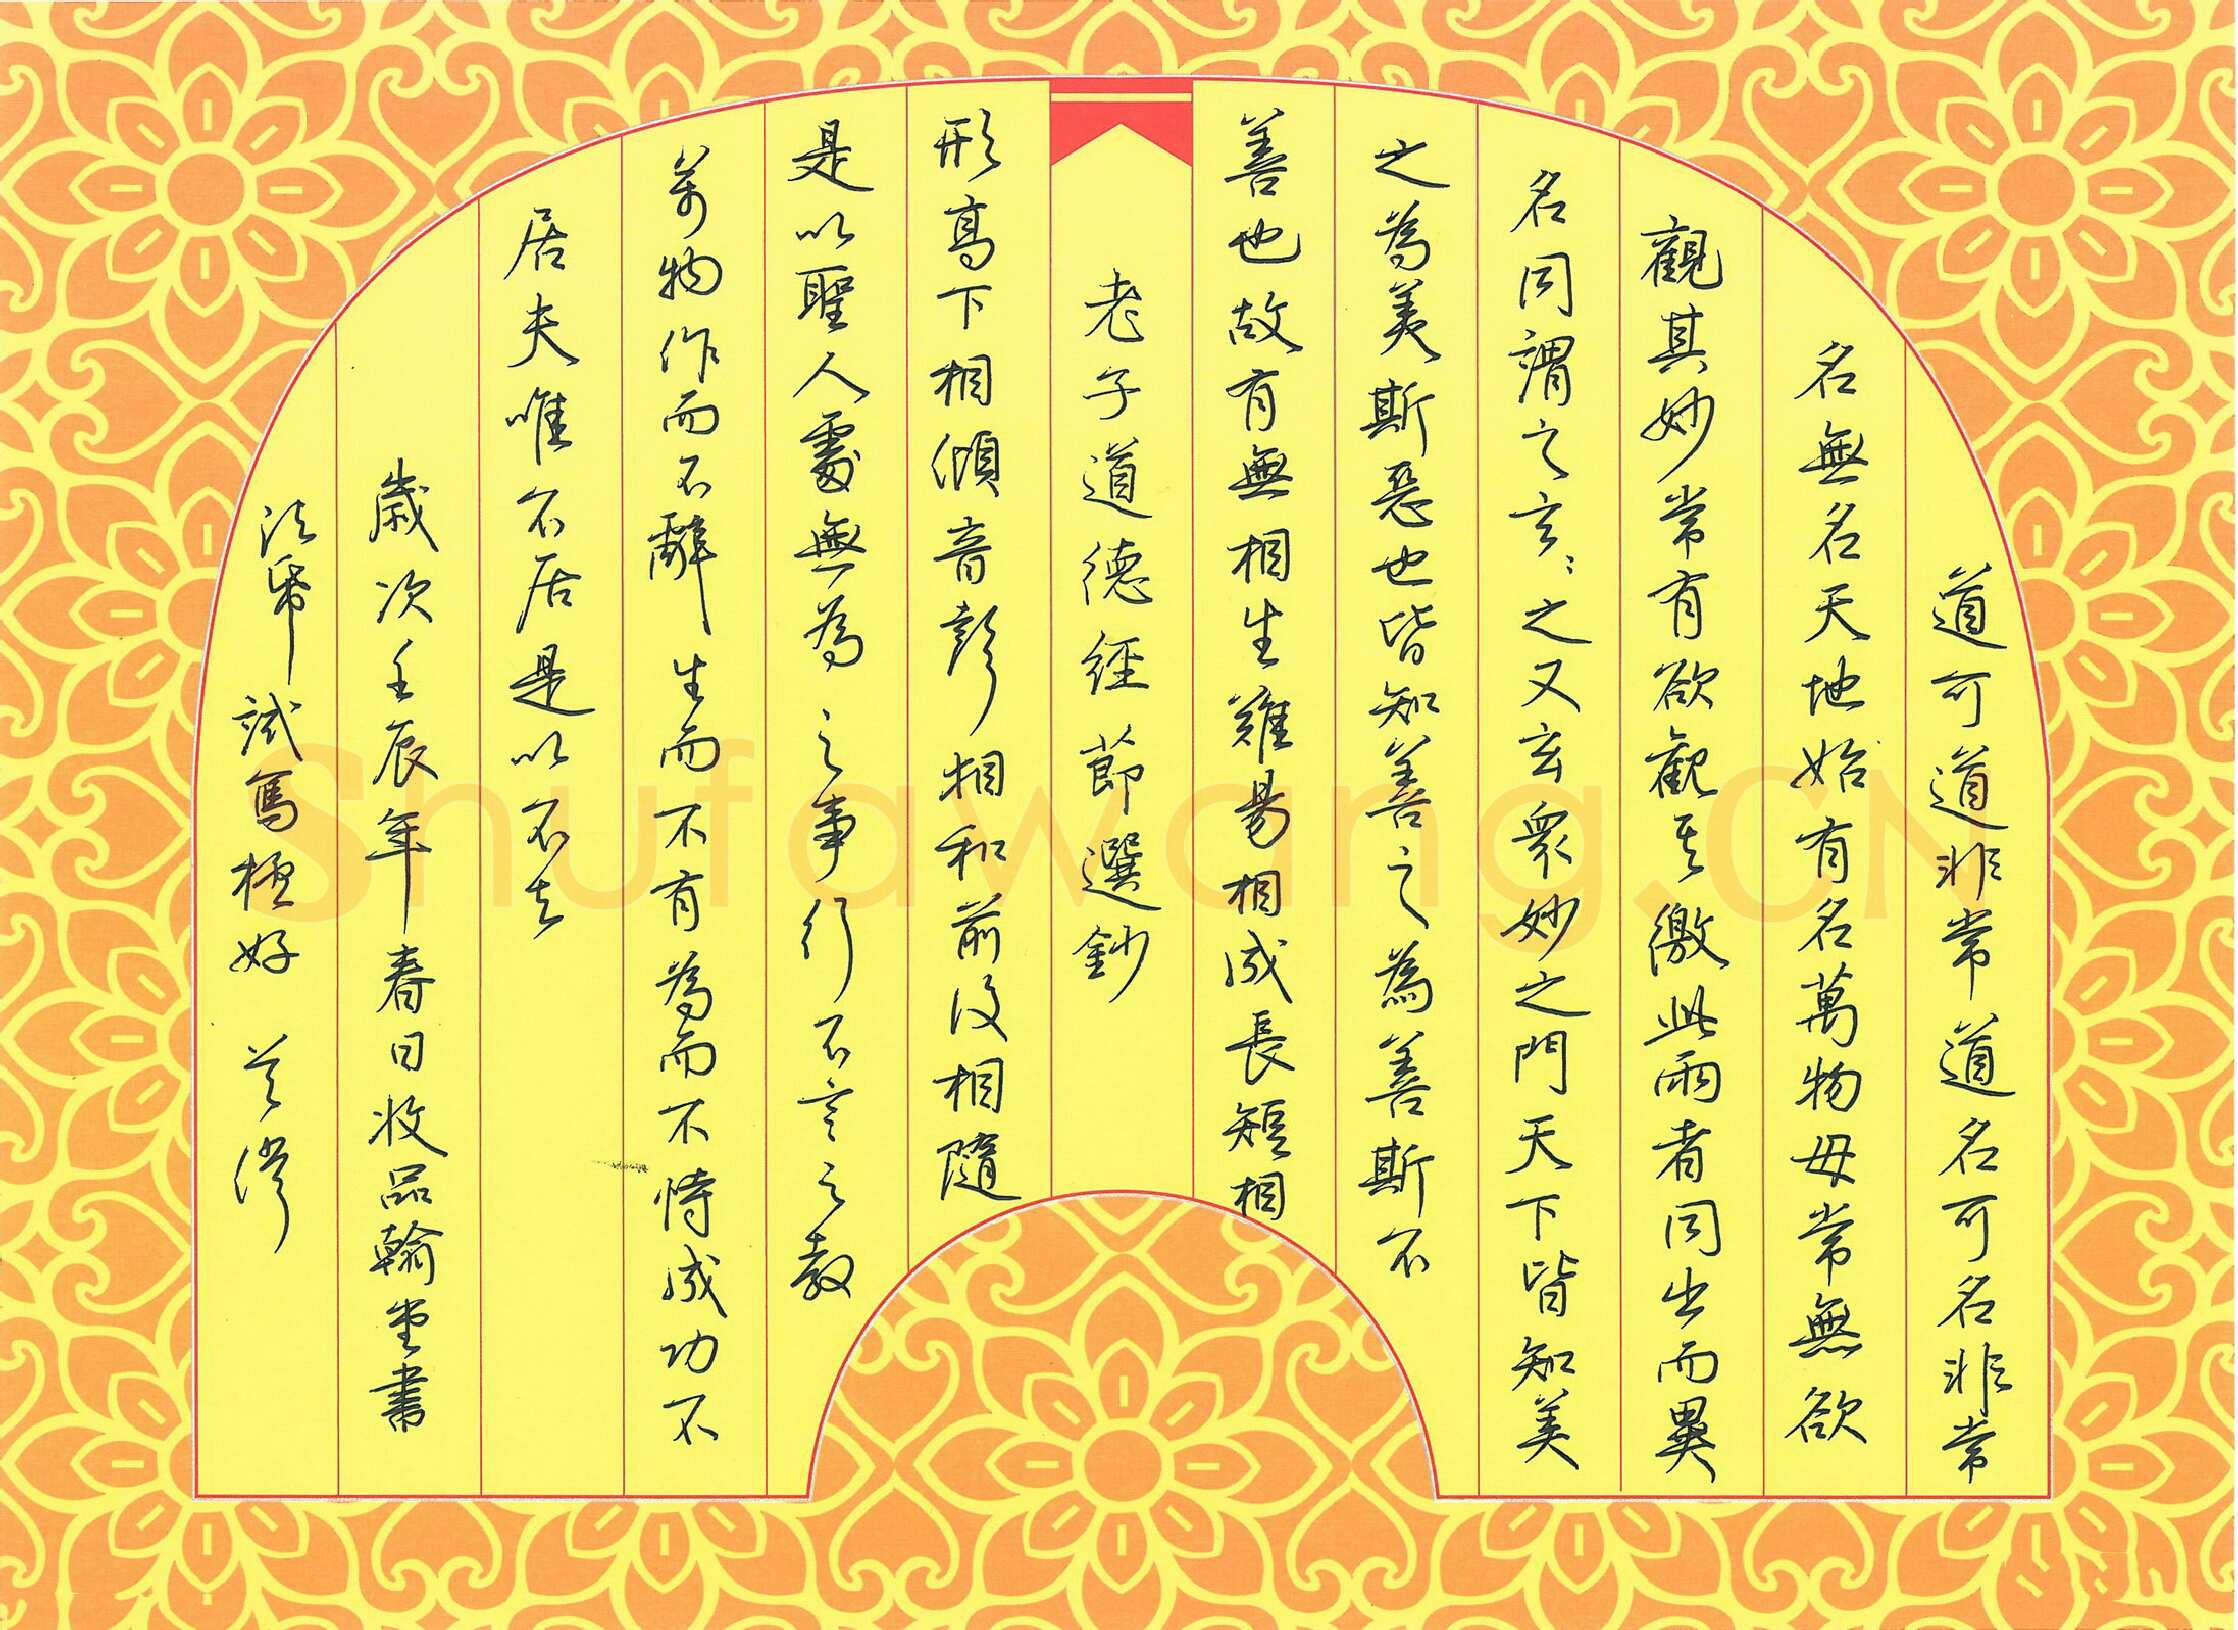 道可道非常道名可名非常
名無名天地始有名萬物母常無欲
觀其妙常有欲觀其徼此兩者同出而異
名同謂之玄〻之又玄衆妙之門天下皆知美
之為美斯惡也皆知善善之為善斯不
善也故有無相生難易相成長短相
老子道德經節選鈔
形高下相傾音聲相和前後相隨
是以聖人處無為之事行不言之教
萬物作而不辭生而不有為而不恃成功不
居夫唯不居是以不去
歲次壬辰年春日收品翰堂書
法帋試寫極好
Shufawang.CN